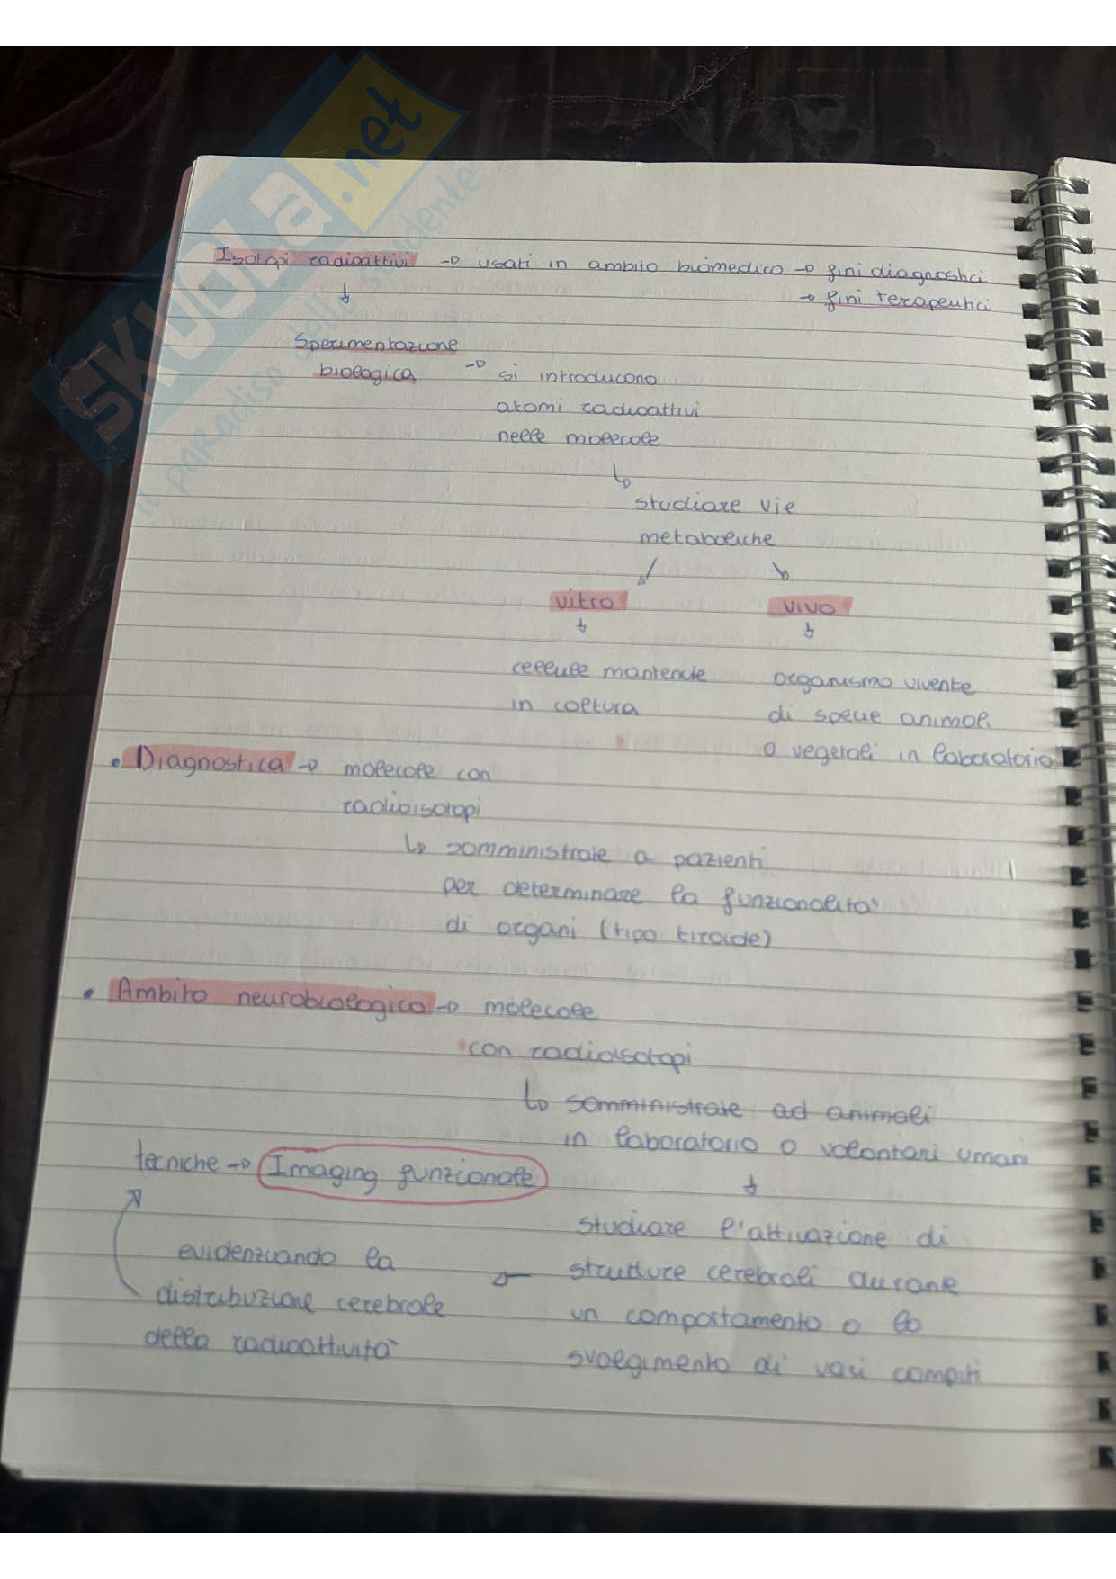 SKUOLA.net
il paradiso dello studente
Isotopi radioattivi → usati in ambito biomedico → fini diagnostici
→ fini terapeutici
↓
Sperimentazione
biologica → si introducono
atomi radioattivi
nelle molecole
↳
studiare vie
metaboliche
↙ ↘
vitro vivo
↓ ↓
cellule mantenute organismo vivente
in coltura di specie animali
o vegetali in laboratorio
• Diagnostica → molecole con
radioisotopi
↳ somministrate a pazienti
per determinare la funzionalità
di organi (tipo tiroide)
• Ambito neurobiologico → molecole
con radioisotopi
↳ somministrate ad animali
in laboratorio o volontari umani
tecniche → Imaging funzionale
↓
studiare l'attivazione di
evidenziando la ← strutture cerebrali durante
distribuzione cerebrale un comportamento o lo
della radioattività svolgimento di vari compiti